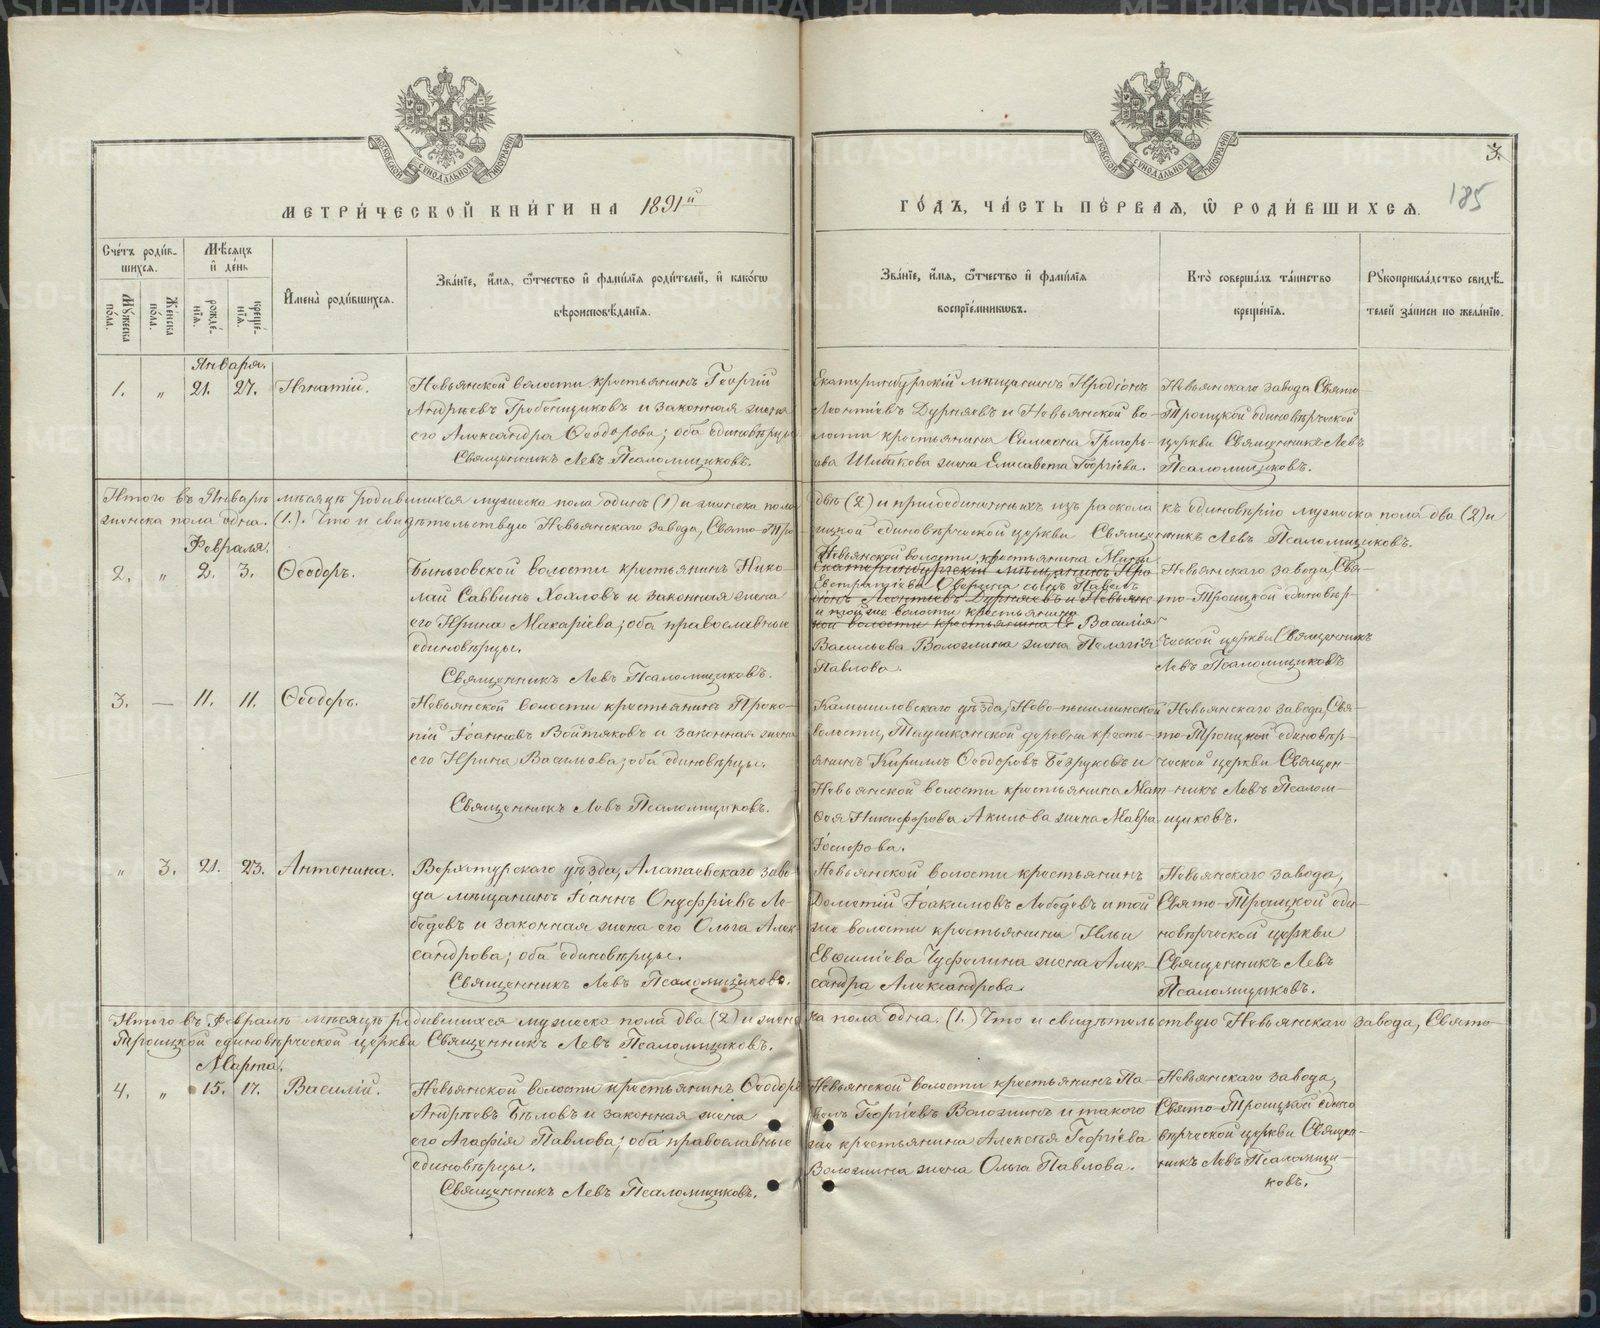 МЕТРИ́ЧЕСКОЙ КНИ́ГИ НА 1891й
ГО́ДЪ, ЧА́СТЬ ПЕ́РВАЯ, Ѡ РОДИ́ВШИХСЯ.
3.
185
Сче́тъ роди́в-
шихся.
Мѣ́сяцъ
и҆ де́нь
Му́жеска
по́ла.
Же́нска
по́ла.
рожде́-
нія.
креще́-
нія.
И҆мена̀ роди́вшихся.
Зва́ніе, и҆́мя, ѻ҆́тчество и҆ фами́лія роди́телей, и҆ како́гѡ
вѣроисповѣ́данія.
Зва́ніе, и҆́мя, ѻ҆́тчество и҆ фами́лія
воспріе́мникѡвъ.
Кто̀ соверша́лъ та́инство
креще́нія.
Рукоприкла́дство свидѣ́-
телей за́писи по жела́нію.
Января.
1. „ 21. 27. Игнатій.
Невьянской волости крестьянинъ Георгій
Андреевъ Гребенщиковъ и законная жена
его Александра Ѳеодорова; оба единовѣрцы
Священникъ Левъ Псаломщиковъ.
Екатеринбургскій мѣщанинъ Иродіонъ
Леонтіевъ Дурняевъ и Невьянской во-
лости крестьянина Симеона Григорь-
ева Шибакова жена Елисавета Георгіева.
Невьянскаго завода Свято-
Троицкой единовѣрческой
церкви Священникъ Левъ
Псаломщиковъ.
Итого въ Январѣ мѣсяцѣ родившихся мужеска пола одинъ (1) и женска пола двѣ (2) и присоединенныхъ изъ раскола къ единовѣрію мужеска пола два (2) и
женска пола одна. (1.). Что и свидѣтельствую Невьянскаго завода, Свято-Тро-ицкой единовѣрческой церкви Священникъ Левъ Псаломщиковъ.
Февраля.
2. „ 2. 3. Ѳеодоръ.
Быньговской волости крестьянинъ Нико-
лай Саввинъ Хохловъ и законная жена
его Ирина Макаріева; оба православные
единовѣрцы.
Священникъ Левъ Псаломщиковъ.
Невьянской волости крестьянина
Екатеринбургскій мѣщанинъ Иро-
Евстратіева Оверина сынъ Павелъ
діонъ Леонтіевъ Дурняевъ и Невьянс-
и той же волости крестьянина
кой волости крестьянина Василія
Васильева Вологжина жена Пелагія
Павлова.
Невьянскаго завода, Свя-
то-Троицкой единовѣр-
ческой церкви Священникъ
Левъ Псаломщиковъ
3. — 11. 11. Ѳеодоръ.
Невьянской волости крестьянинъ Проко-
пій Іоанновъ Войтяковъ и законная жена
его Ирина Васильева; оба единовѣрцы.
Священникъ Левъ Псаломщиковъ.
Камышловскаго уѣзда, Ново-пышминской
волости, деревни кресть-
янинъ Кирилъ Ѳеодоровъ Безруковъ и
Невьянской волости крестьянина Мат-
ѳея Никифорова Акилова жена Мавра
Іосифова.
Невьянскаго завода, Свя-
то-Троицкой единовѣр-
ческой церкви Священ-
никъ Левъ Псалом-
щиковъ.
„ 3. 21. 23. Антонина.
Верхотурскаго уѣзда, Алапаевскаго заво-
да мѣщанинъ Іоаннъ Онуфріевъ Ле-
бедевъ и законная жена его Ольга Алек-
сандрова; оба единовѣрцы.
Священникъ Левъ Псаломщиковъ.
Невьянской волости крестьянинъ
Дометій Іоакимовъ Лебедевъ и той
же волости крестьянина Ильи
Евѳиміева жена Алек-
сандра Александрова.
Невьянскаго завода,
Свято-Троицкой еди-
новѣрческой церкви
Священникъ Левъ
Псаломщиковъ.
Итого въ Февралѣ мѣсяцѣ родившихся мужеска пола два (2) и женс-ка пола одна. (1.) Что и свидѣтельствую Невьянскаго завода, Свято-
Троицкой единовѣрческой церкви Священникъ Левъ Псаломщиковъ.
Марта.
4. „ 15. 17. Василій.
Невьянской волости крестьянинъ Ѳеодоръ
Андреевъ Бѣловъ и законная жена
его Агафія Павлова; оба православные
единовѣрцы.
Священникъ Левъ Псаломщиковъ.
Невьянской волости крестьянинъ Па-
велъ Георгіевъ Вологжинъ и такого
же крестьянина Алексѣя Георгіева
Вологжина жена Ольга Павлова.
Невьянскаго завода,
Свято-Троицкой едино-
вѣрческой церкви Священ-
никъ Левъ Псаломщи-
ковъ.